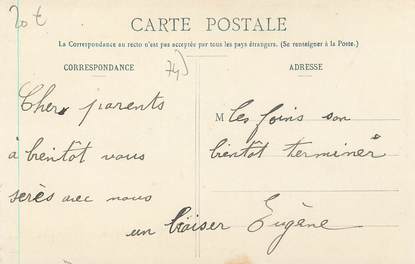 20 €
CARTE POSTALE
La Correspondance au recto n'est pas acceptée par tous les pays étrangers. (Se renseigner à la Poste.)
CORRESPONDANCE
74)
ADRESSE
Cher parents
à bientôt vous
serès avec nous
un baiser Eugène
M les foins son
bientôt terminér